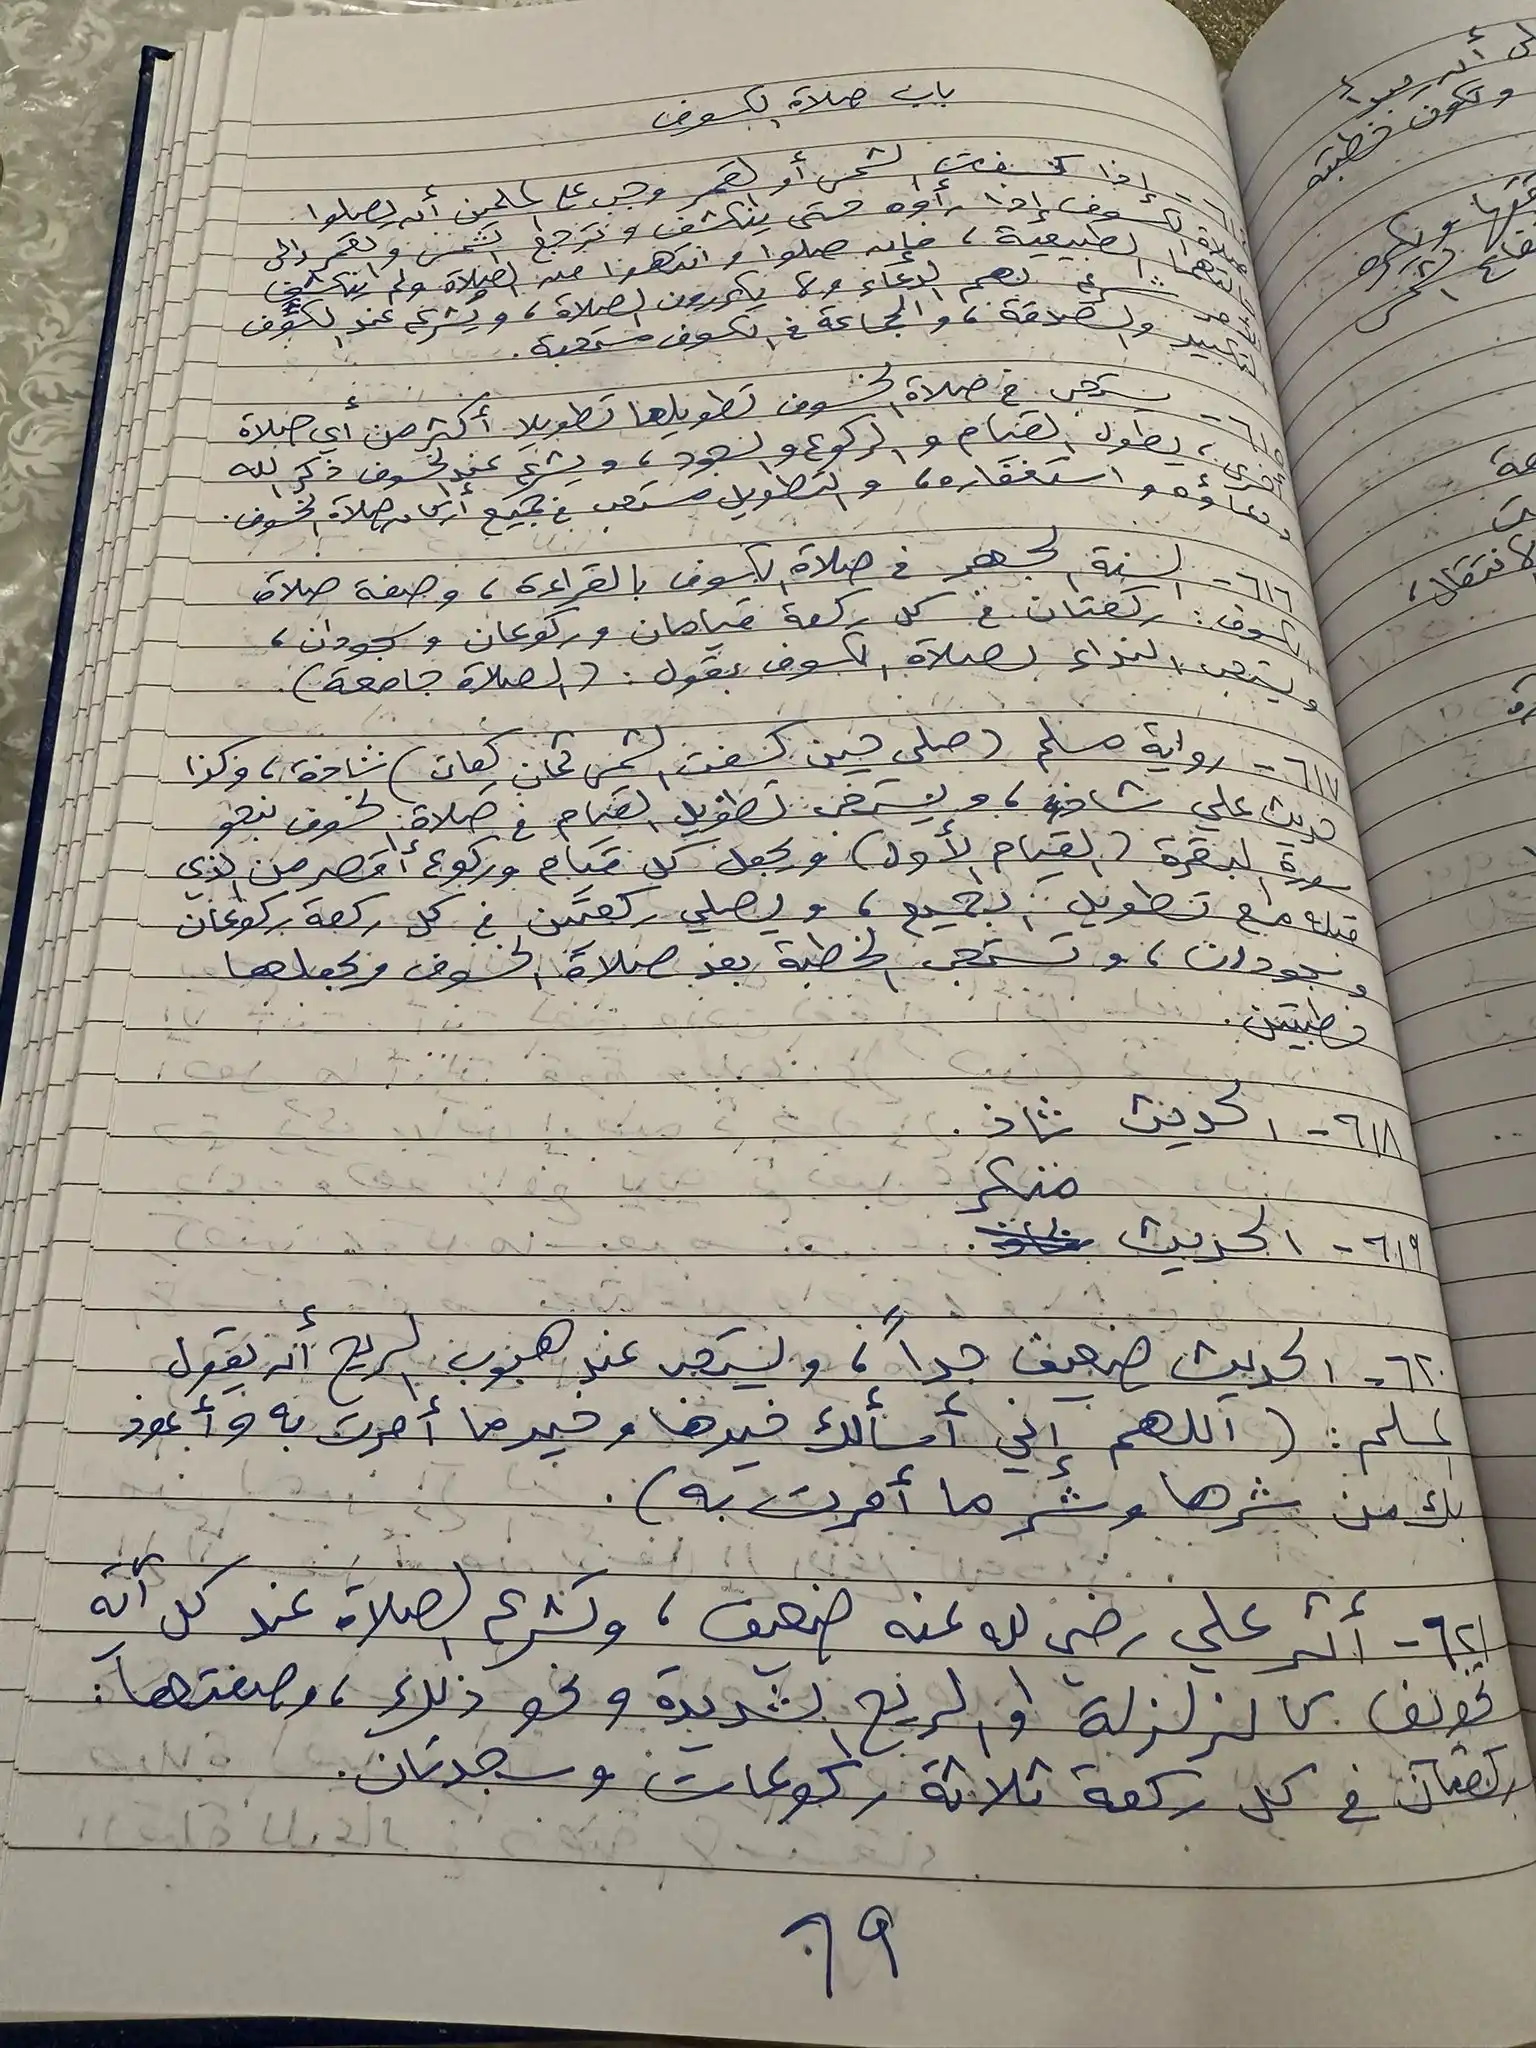 باب صلاة الكسوف
٦١٤- إذا كسفت الشمس أو القمر وجب على المسلمين أن يصلوا
صلاة الكسوف إذا رأوه حتى ينكشف وترجع الشمس والقمر إلى
حالتهما الطبيعية، فإن صلوا وانتهوا من الصلاة ولم ينكشف
شرع لهم الدعاء ولا يكررون الصلاة، ويشرع عند الكسوف
التكبير والصدقة، والجماعة في الكسوف مستحبة.
٦١٥- يستحب في صلاة الخسوف تطويلها تطويلا أكثر من أي صلاة
أخرى، يطول القيام والركوع والسجود، ويشرع عند الخسوف ذكر الله
ودعاؤه واستغفاره، والتطويل مستحب في جميع أركان صلاة الخسوف.
٦١٦- السنة الجهر في صلاة الكسوف بالقراءة، وصفة صلاة
الكسوف: ركعتان في كل ركعة قيامان وركوعان وسجودان،
ويستحب النداء لصلاة الكسوف بقول: (الصلاة جامعة).
٦١٧- رواية مسلم (صلى حين كسفت الشمس ثمان ركعات) شاذة، وكذا
حديث علي شاذ، ويستحب تطويل القيام في صلاة الخسوف بنحو
سورة البقرة (القيام الأول) ويجعل كل قيام وركوع أقصر من الذي
قبله مع تطويل الجميع، ويصلي ركعتين في كل ركعة ركوعان
وسجودان، وتستحب الخطبة بعد صلاة الخسوف ويجعلها
خطبتين.
٦١٨- الحديث شاذ.
منكر
٦١٩- الحديث
٦٢٠- الحديث ضعيف جداً، ويستحب عند هبوب الريح أن يقول
المسلم: (اللهم إني أسألك خيرها وخير ما أمرت به وأعوذ
بك من شرها وشر ما أمرت به).
٦٢١- أثر علي رضي الله عنه ضعيف، وتشرع الصلاة عند كل آية
تخويف كالزلزلة أو الريح الشديدة ونحو ذلك، وصفتها:
ركعتان في كل ركعة ثلاثة ركوعات وسجدتان.
٦٩